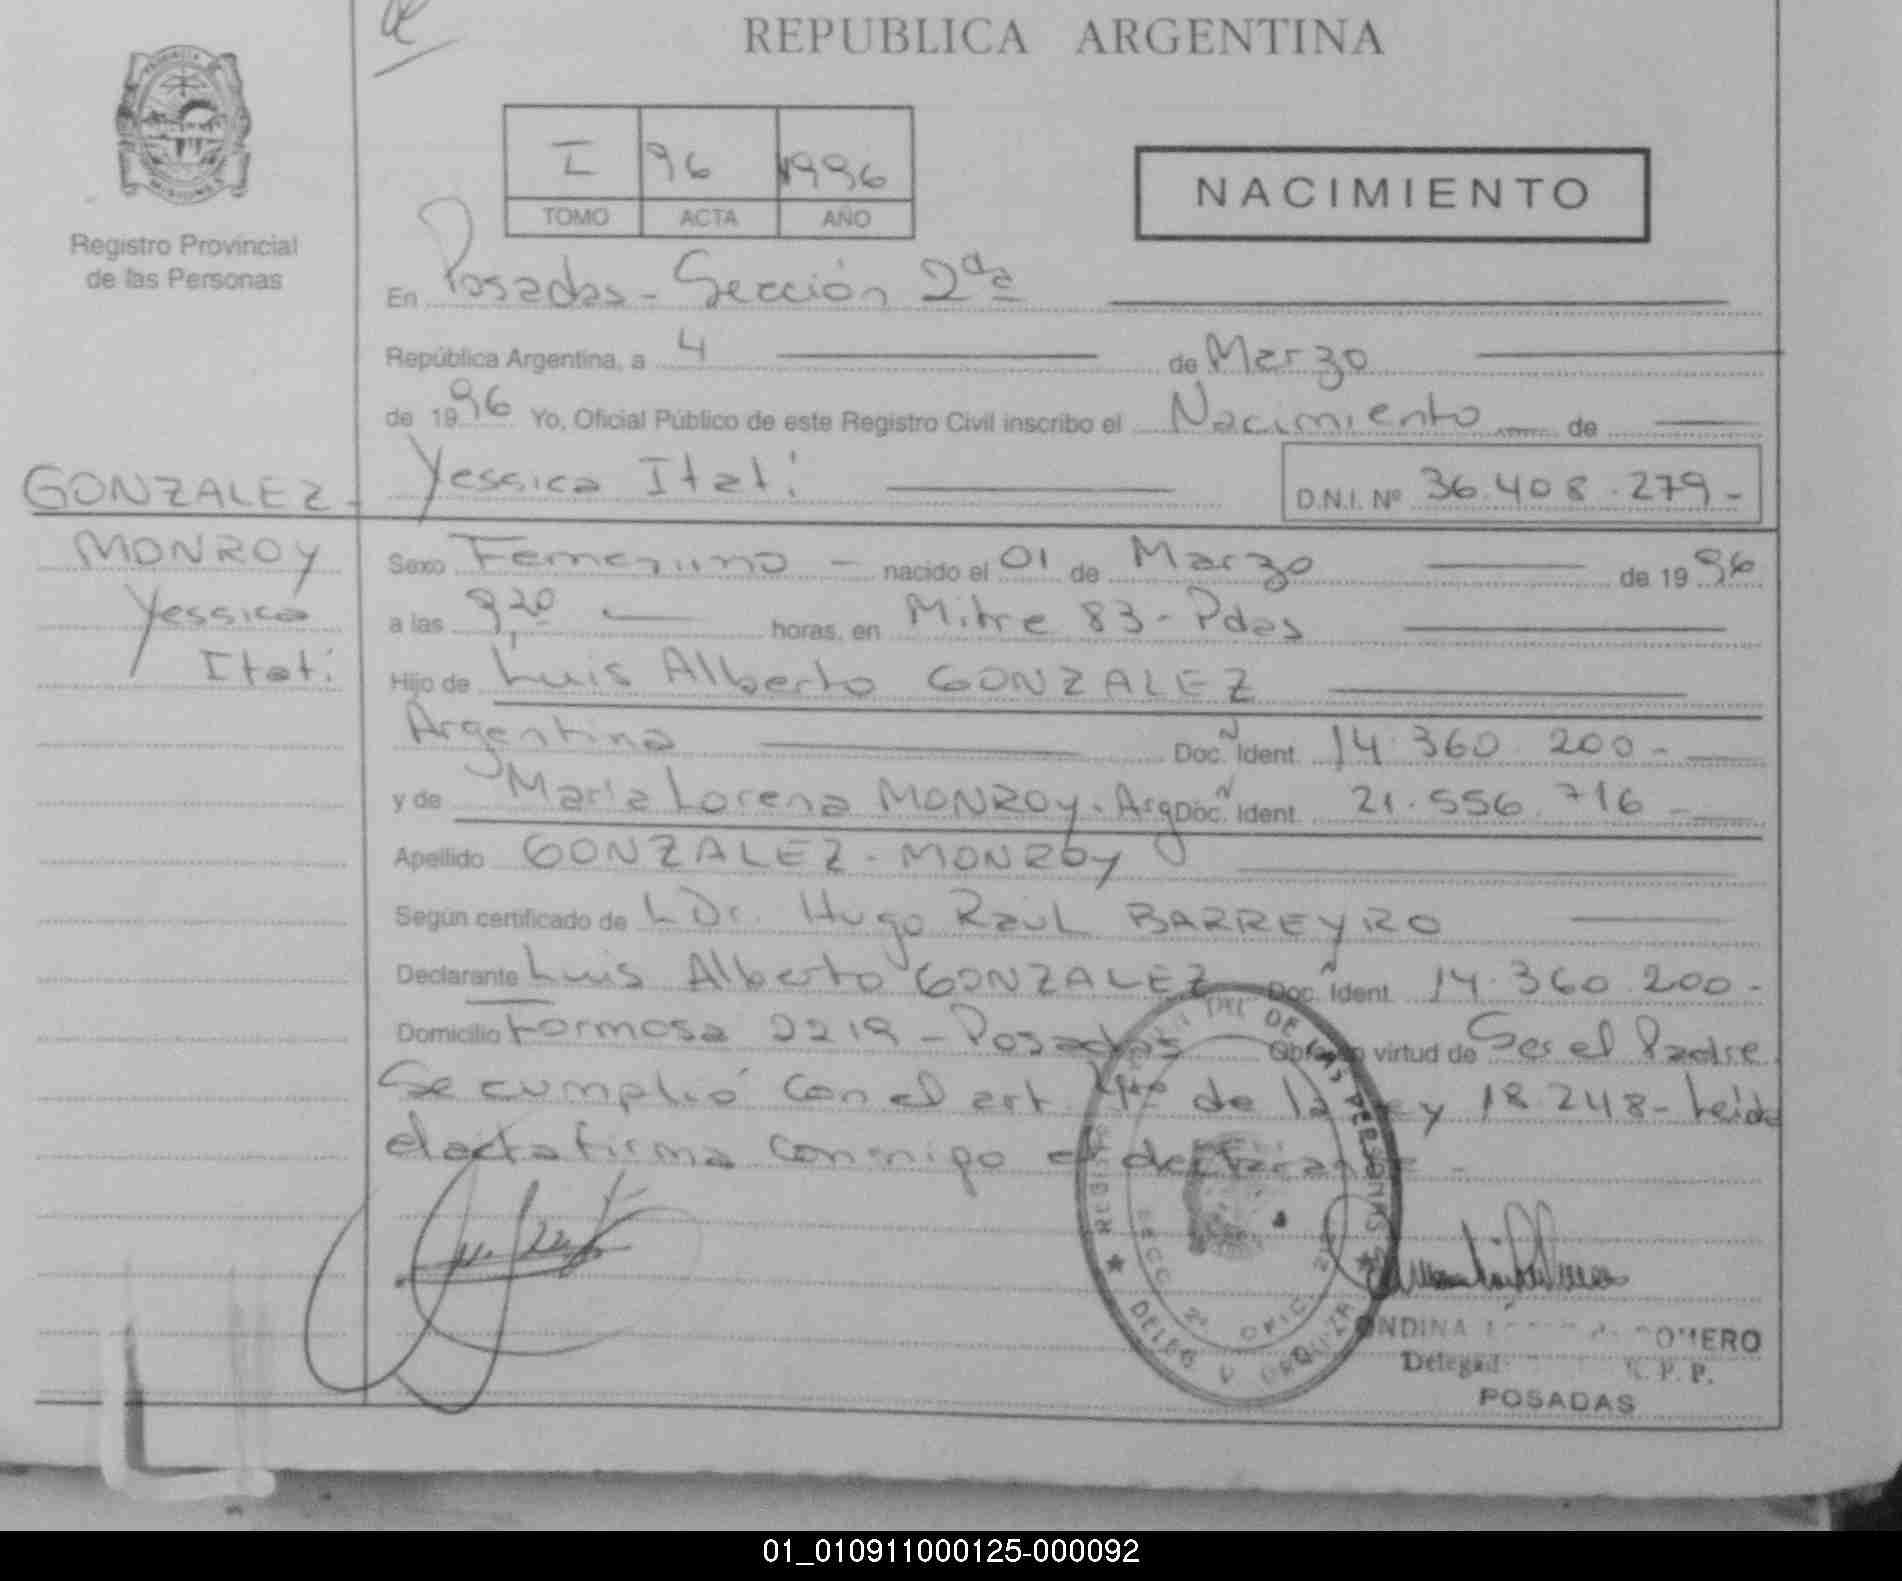 REPUBLICA ARGENTINA
PROVINCIA
MISIONES
Registro Provincial
de las Personas
I 96 1996
TOMO ACTA AÑO
NACIMIENTO
En Posadas - Sección 2da
República Argentina, a 4 de Marzo
de 1996 Yo, Oficial Público de este Registro Civil inscribo el Nacimiento de
GONZALEZ - Yessica Itatí D.N.I. Nº 36.408.279-
MONROY Sexo Femenino - nacido el 01 de Marzo de 1996
Yessica a las 9,20 horas, en Mitre 83 - Pdas
Itatí Hijo de Luis Alberto GONZALEZ
Argentina Doc. N Ident. 14.360.200-
y de María Lorena MONROY. Arg Doc. N Ident. 21.556.716-
Apellido GONZALEZ - MONROY
Según certificado de Dr. Hugo Raúl BARREYRO
Declarante Luis Alberto GONZALEZ Doc. N Ident. 14.360.200-
Domicilio Formosa 2219 - Posadas Obra en virtud de Ser el Padre.
Se cumplió con el art. 4to de la Ley 18.248- Leída
el acta firma conmigo el declarante -
REGISTRO DE LAS PERSONAS
SECC. 2ª OFIC.
DELEG. V. URQUIZA
ONDINA ROMERO
Delegada R. P. P.
POSADAS
01_010911000125-000092